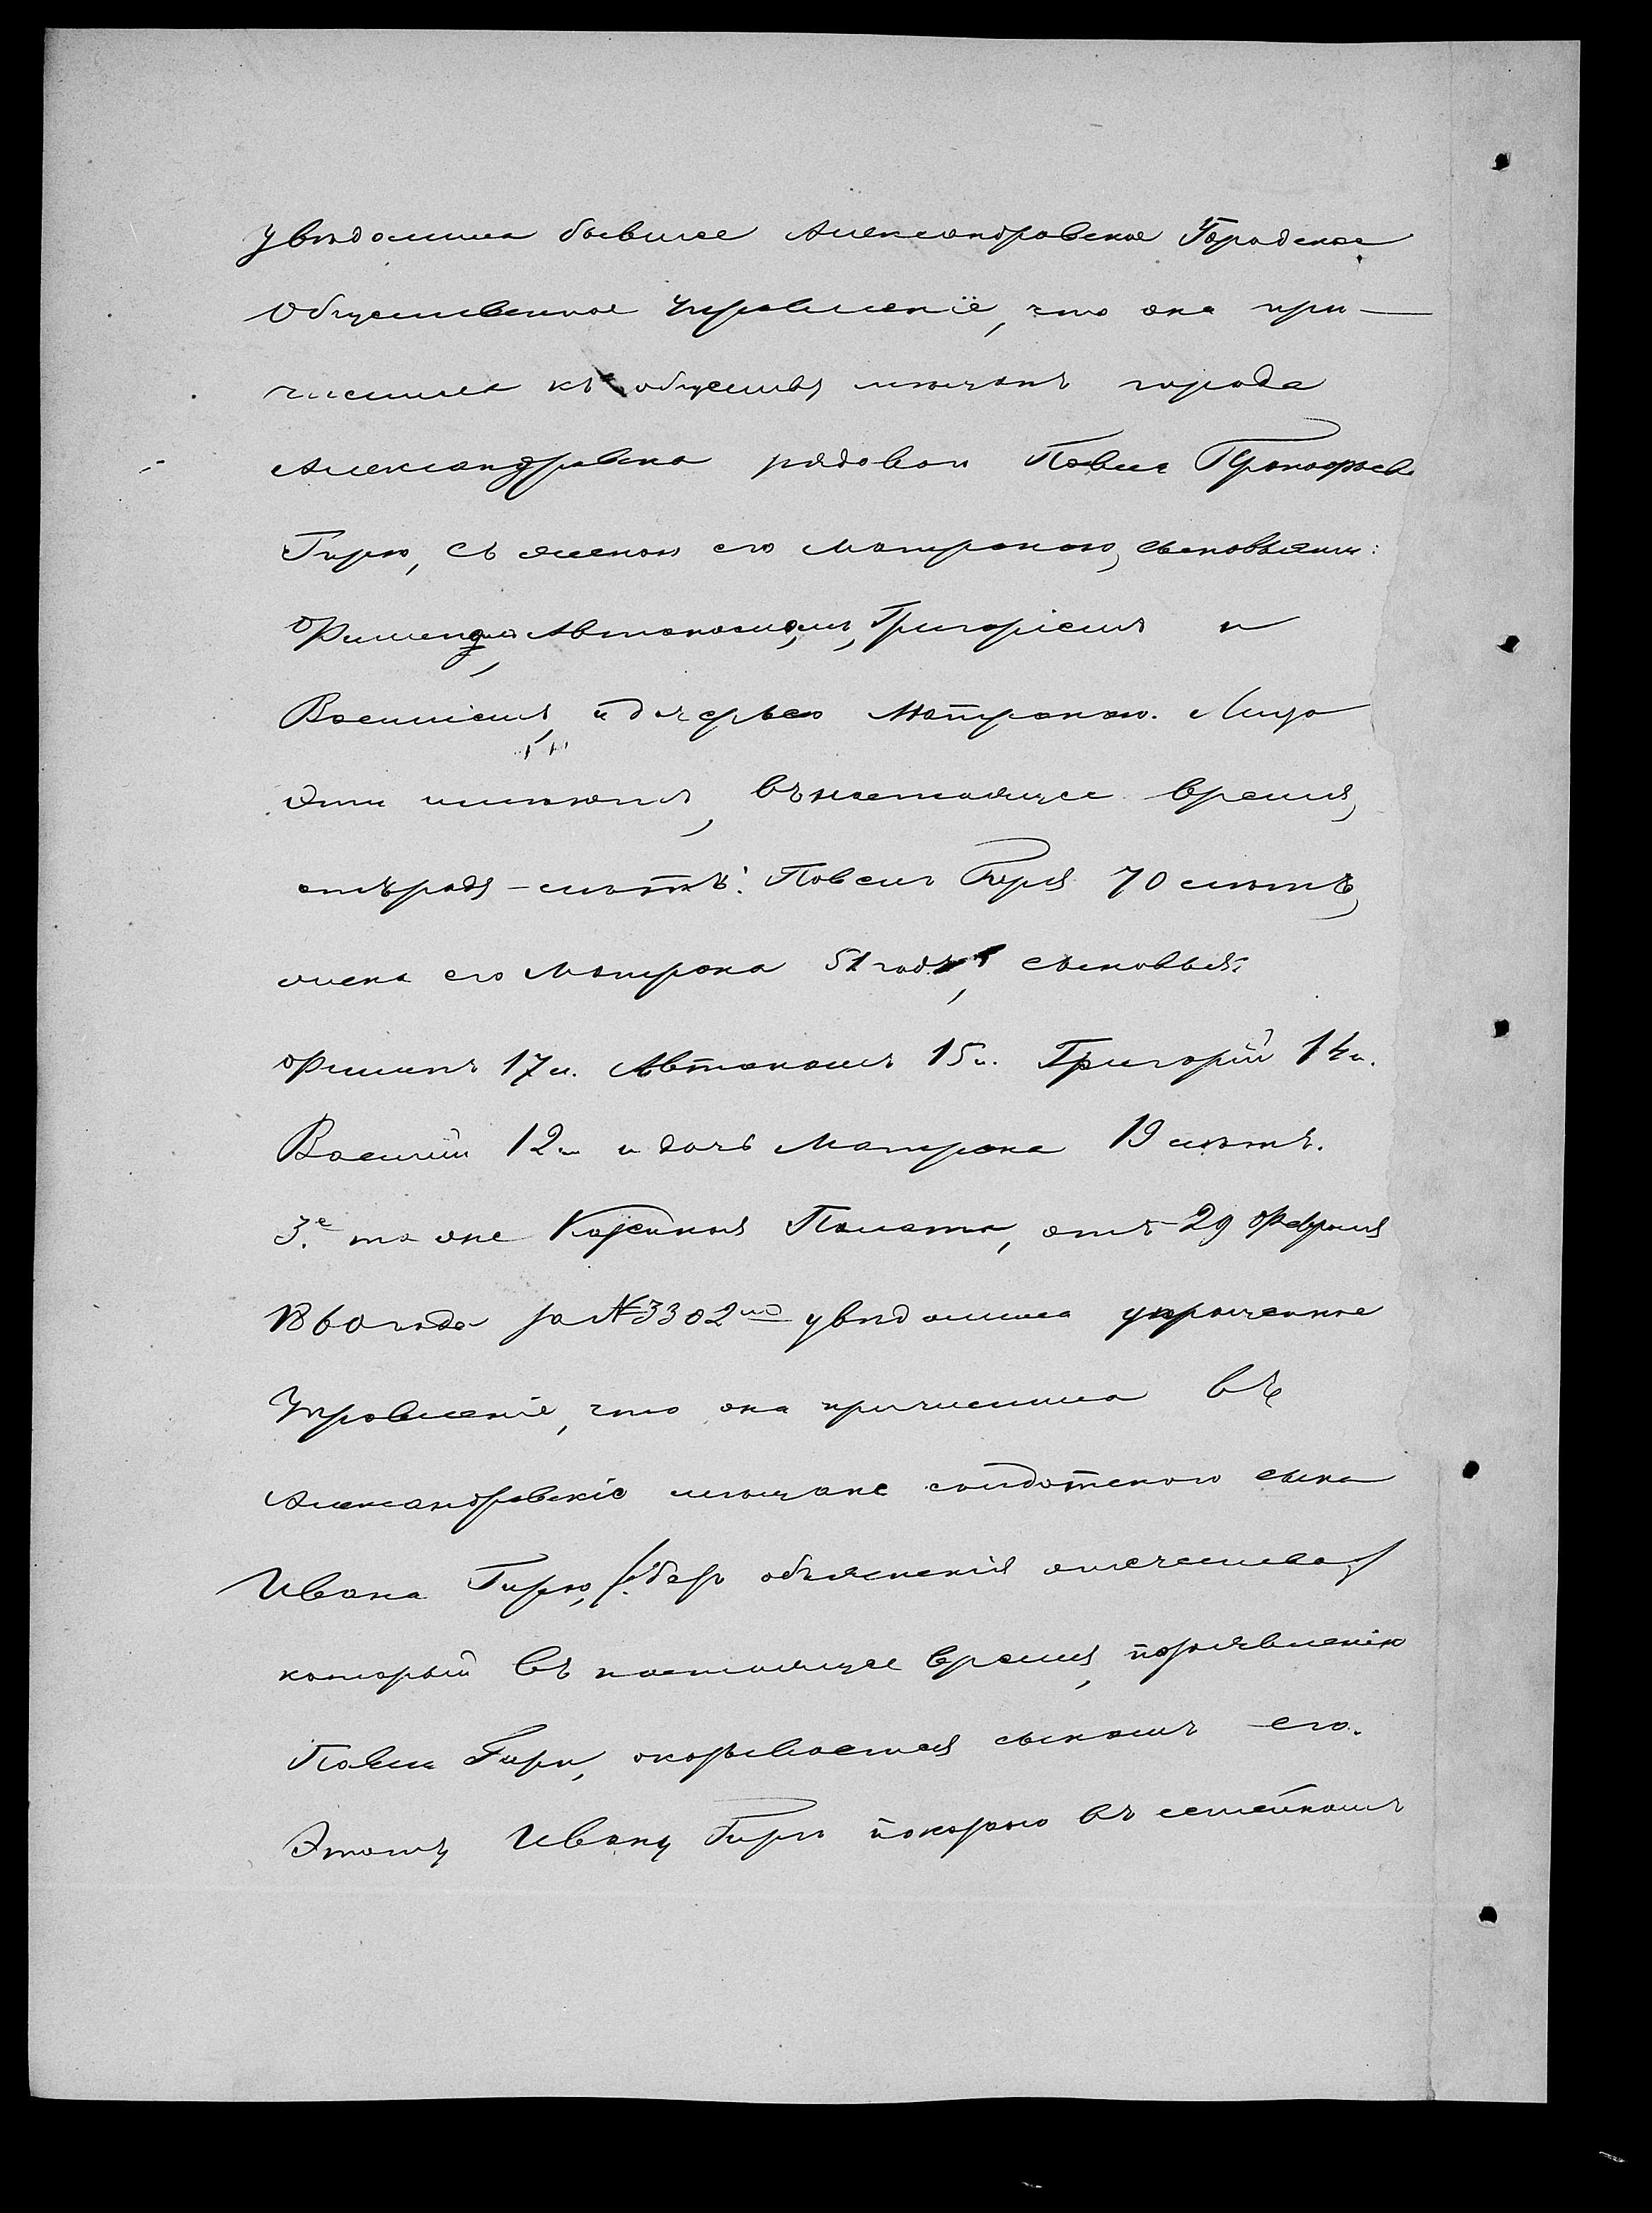 увѣдомила бывшее Александровское Городское
Общественное Управленіе, что она при-
числила къ обществу мѣщанъ города
Александровска рядоваго Павла Прокофьева
Гирю, съ женою его Матроною, сыновьями:
Филипомъ, Автономомъ, Григоріемъ и
Василіемъ, и дочерью Матроною. Лица
эти имѣютъ, въ настоящее время,
отъ роду – лѣтъ: Павелъ Гиря 70 лѣтъ,
жена его Матрона 51 годъ, сыновья:
Филипъ 17 л. Автономъ 15 л. Григорій 14 л.
Василій 12 л. и дочь Матрона 19 лѣтъ.
3.е та же Казенная Палата, отъ 29 Февраля
1860 года за № 3302мъ увѣдомила упраченное
Управленіе, что она причислила въ
Александровскіе мѣщане солдатскаго сына
Ивана Гирю, /безъ объясненія отечества/
который въ настоящее время, по заявленію
Павла Гири, оказывается сыномъ его.
Этому Ивану Гирѣ показано въ семейномъ